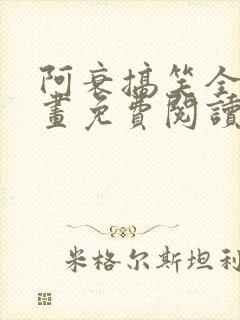 阿衰搞笑全
畫免費閱讀
米格尔斯坦利